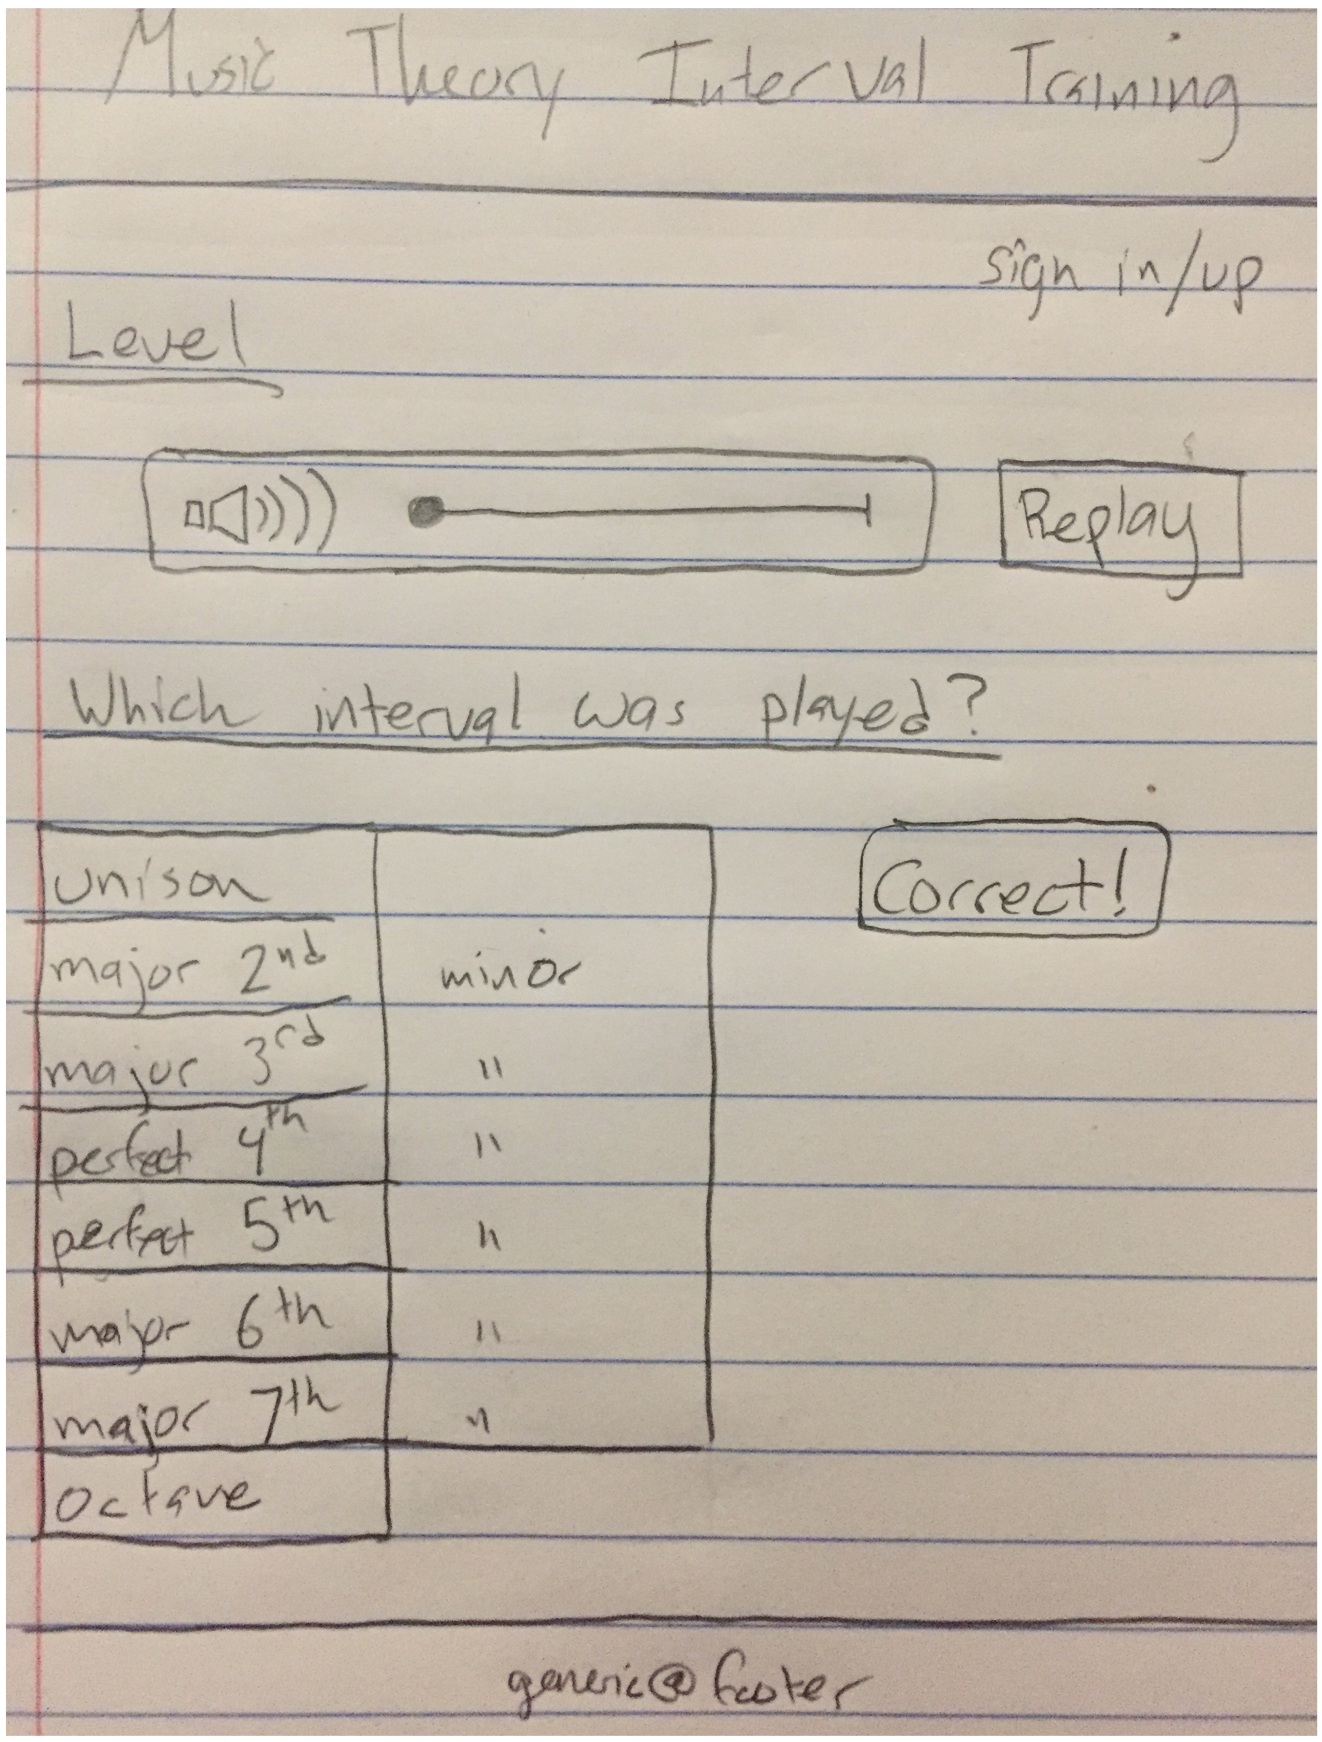 Music Theory Interval Training
sign in/up
Level
Replay
Which interval was played?
unison
Correct!
major 2nd minor
major 3rd "
perfect 4th "
perfect 5th "
major 6th "
major 7th "
octave
generic@footer